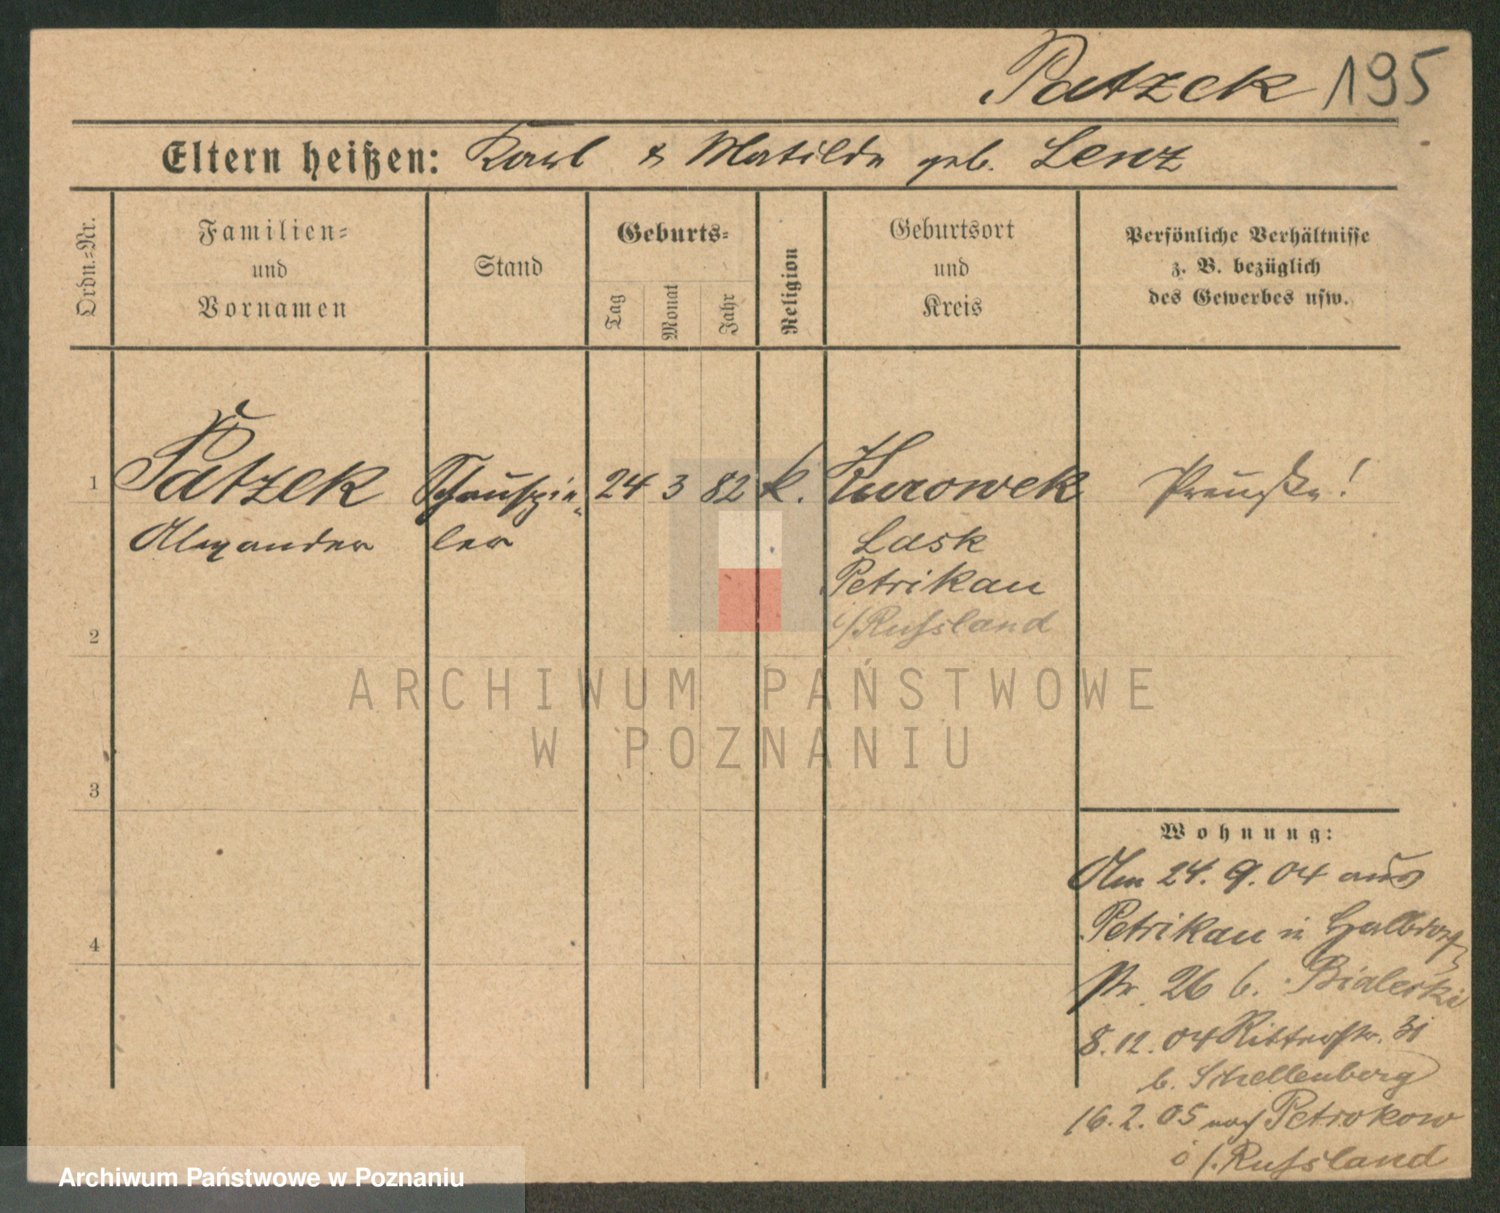 Patzek 195
Eltern heißen: Karl & Matilde geb. Lenz
Ordn.=Nr.
Familien=
und
Vornamen
Stand
Geburts=
Tag
Monat
Jahr
Religion
Geburtsort
und
Kreis
Persönliche Verhältnisse
z. B. bezüglich
des Gewerbes usw.
1 Patzek Schauspie= 24 3 82 k. Kurowek Preuße!
Alexander ler Lask
Petrikau
i/Russland
2
3
4
Wohnung:
Am 24. 9. 04 aus
Petrikau in
26 b. Bialecki
8. 12. 04 Ritterstr. 31
b. Schellenberg
16. 2. 05 nach Petrokow
i/Russland
ARCHIWUM PAŃSTWOWE
W POZNANIU
Archiwum Państwowe w Poznaniu